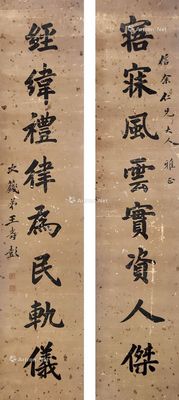 宿寐風雲實資人傑
信余仁兄大人雅正
經緯禮律為民軌儀
次籛弟王壽彭